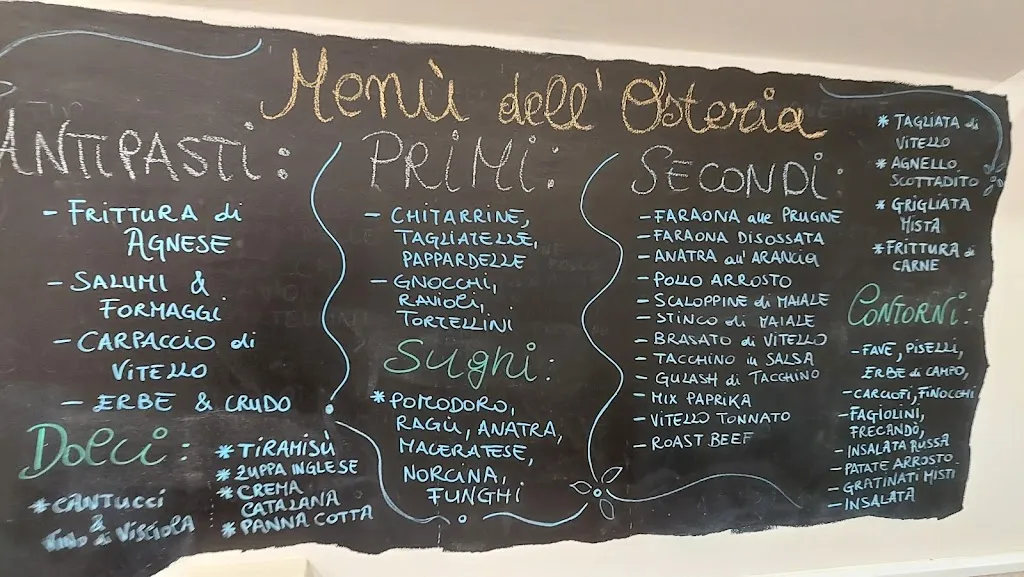 Menù dell'Osteria
ANTIPASTI:
- FRITTURA di
AGNESE
- SALUMI &
FORMAGGI
- CARPACCIO di
VITELLO
- ERBE & CRUDO
Dolci:
* CANTUCCI
&
VINO di VISCIOLA
* TIRAMISÙ
* ZUPPA INGLESE
* CREMA
CATALANA
* PANNA COTTA
PRIMI:
- CHITARRINE,
TAGLIATELLE,
PAPPARDELLE
- GNOCCHI,
RAVIOLI,
TORTELLINI
Sughi:
* POMODORO,
RAGÙ, ANATRA,
MACERATESE,
NORCINA,
FUNGHI
SECONDI:
- FARAONA alle PRUGNE
- FARAONA DISOSSATA
- ANATRA all'ARANCIA
- POLLO ARROSTO
- SCALOPPINE di MAIALE
- STINCO di MAIALE
- BRASATO di VITELLO
- TACCHINO in SALSA
- GULASH di TACCHINO
- MIX PAPRIKA
- VITELLO TONNATO
- ROAST BEEF
* TAGLIATA di
VITELLO
* AGNELLO
SCOTTADITO
* GRIGLIATA
MISTA
* FRITTURA di
CARNE
CONTORNI:
- FAVE, PISELLI,
ERBE di CAMPO,
- CARCIOFI, FINOCCHI
- FAGIOLINI,
FRECANDÒ,
- INSALATA RUSSA
- PATATE ARROSTO
- GRATINATI MISTI
- INSALATA